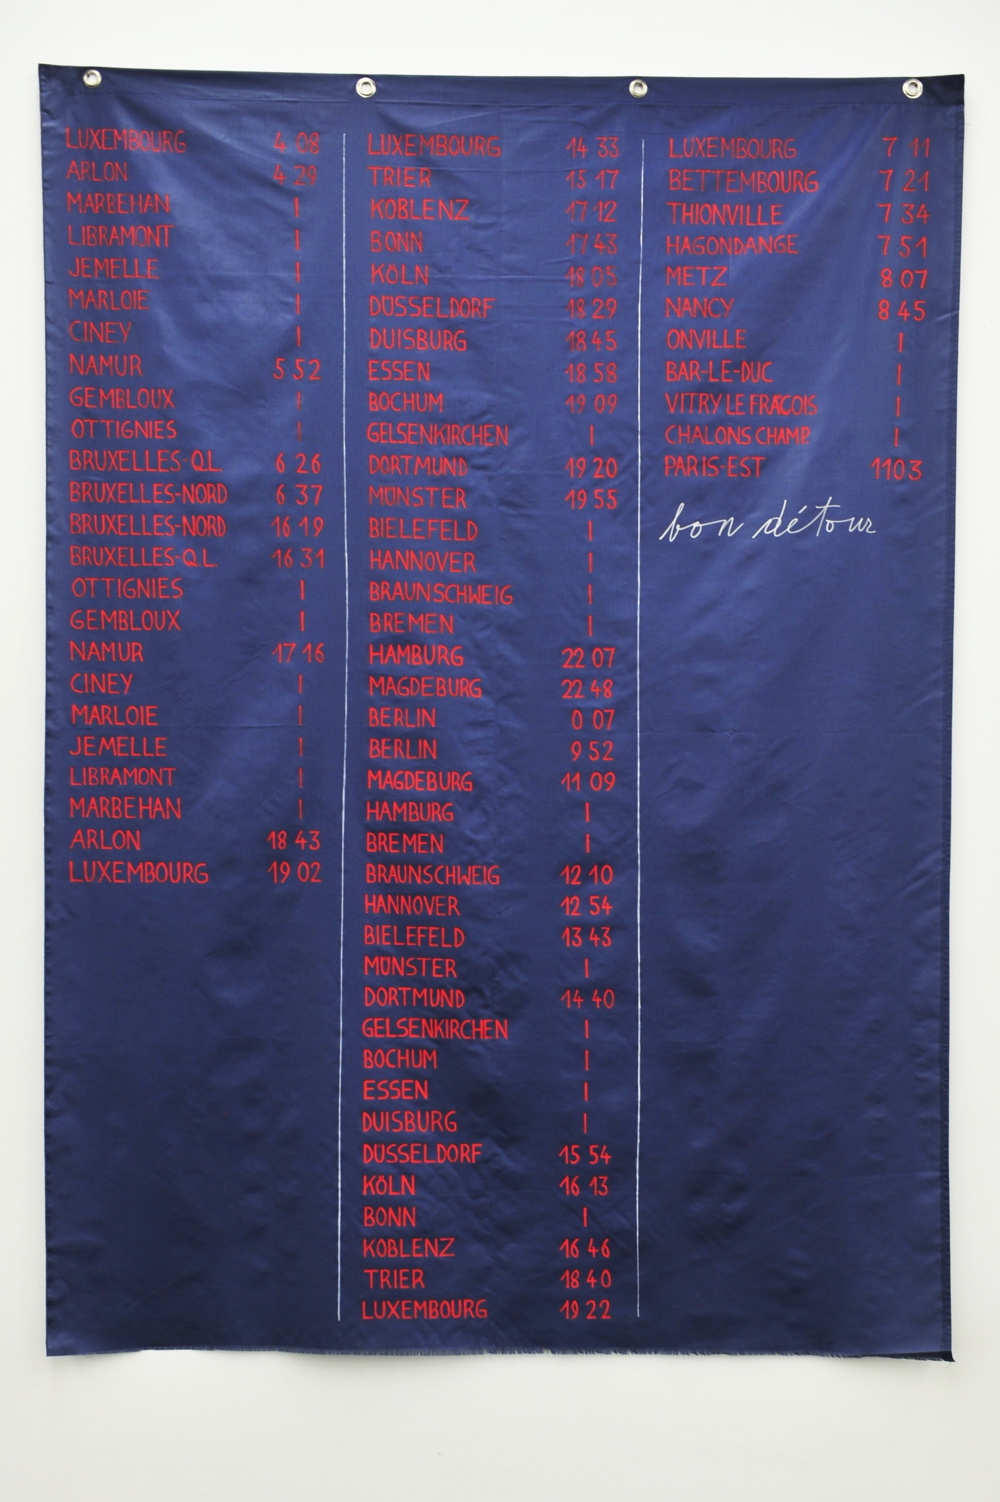 LUXEMBOURG 4 08
ARLON 4 29
MARBEHAN |
LIBRAMONT |
JEMELLE |
MARLOIE |
CINEY |
NAMUR 5 52
GEMBLOUX |
OTTIGNIES |
BRUXELLES-Q.L. 6 26
BRUXELLES-NORD 6 37
BRUXELLES-NORD 16 19
BRUXELLES-Q.L. 16 31
OTTIGNIES |
GEMBLOUX |
NAMUR 17 16
CINEY |
MARLOIE |
JEMELLE |
LIBRAMONT |
MARBEHAN |
ARLON 18 43
LUXEMBOURG 19 02
LUXEMBOURG 14 33
TRIER 15 17
KOBLENZ 17 12
BONN 17 43
KÖLN 18 05
DÜSSELDORF 18 29
DUISBURG 18 45
ESSEN 18 58
BOCHUM 19 09
GELSENKIRCHEN |
DORTMUND 19 20
MÜNSTER 19 55
BIELEFELD |
HANNOVER |
BRAUNSCHWEIG |
BREMEN |
HAMBURG 22 07
MAGDEBURG 22 48
BERLIN 0 07
BERLIN 9 52
MAGDEBURG 11 09
HAMBURG |
BREMEN |
BRAUNSCHWEIG 12 10
HANNOVER 12 54
BIELEFELD 13 43
MÜNSTER |
DORTMUND 14 40
GELSENKIRCHEN |
BOCHUM |
ESSEN |
DUISBURG |
DÜSSELDORF 15 54
KÖLN 16 13
BONN |
KOBLENZ 16 46
TRIER 18 40
LUXEMBOURG 19 22
LUXEMBOURG 7 11
BETTEMBOURG 7 21
THIONVILLE 7 34
HAGONDANGE 7 51
METZ 8 07
NANCY 8 45
ONVILLE |
BAR-LE-DUC |
VITRY LE FRAÇOIS |
CHALONS CHAMP. |
PARIS-EST 11 03
bon détour